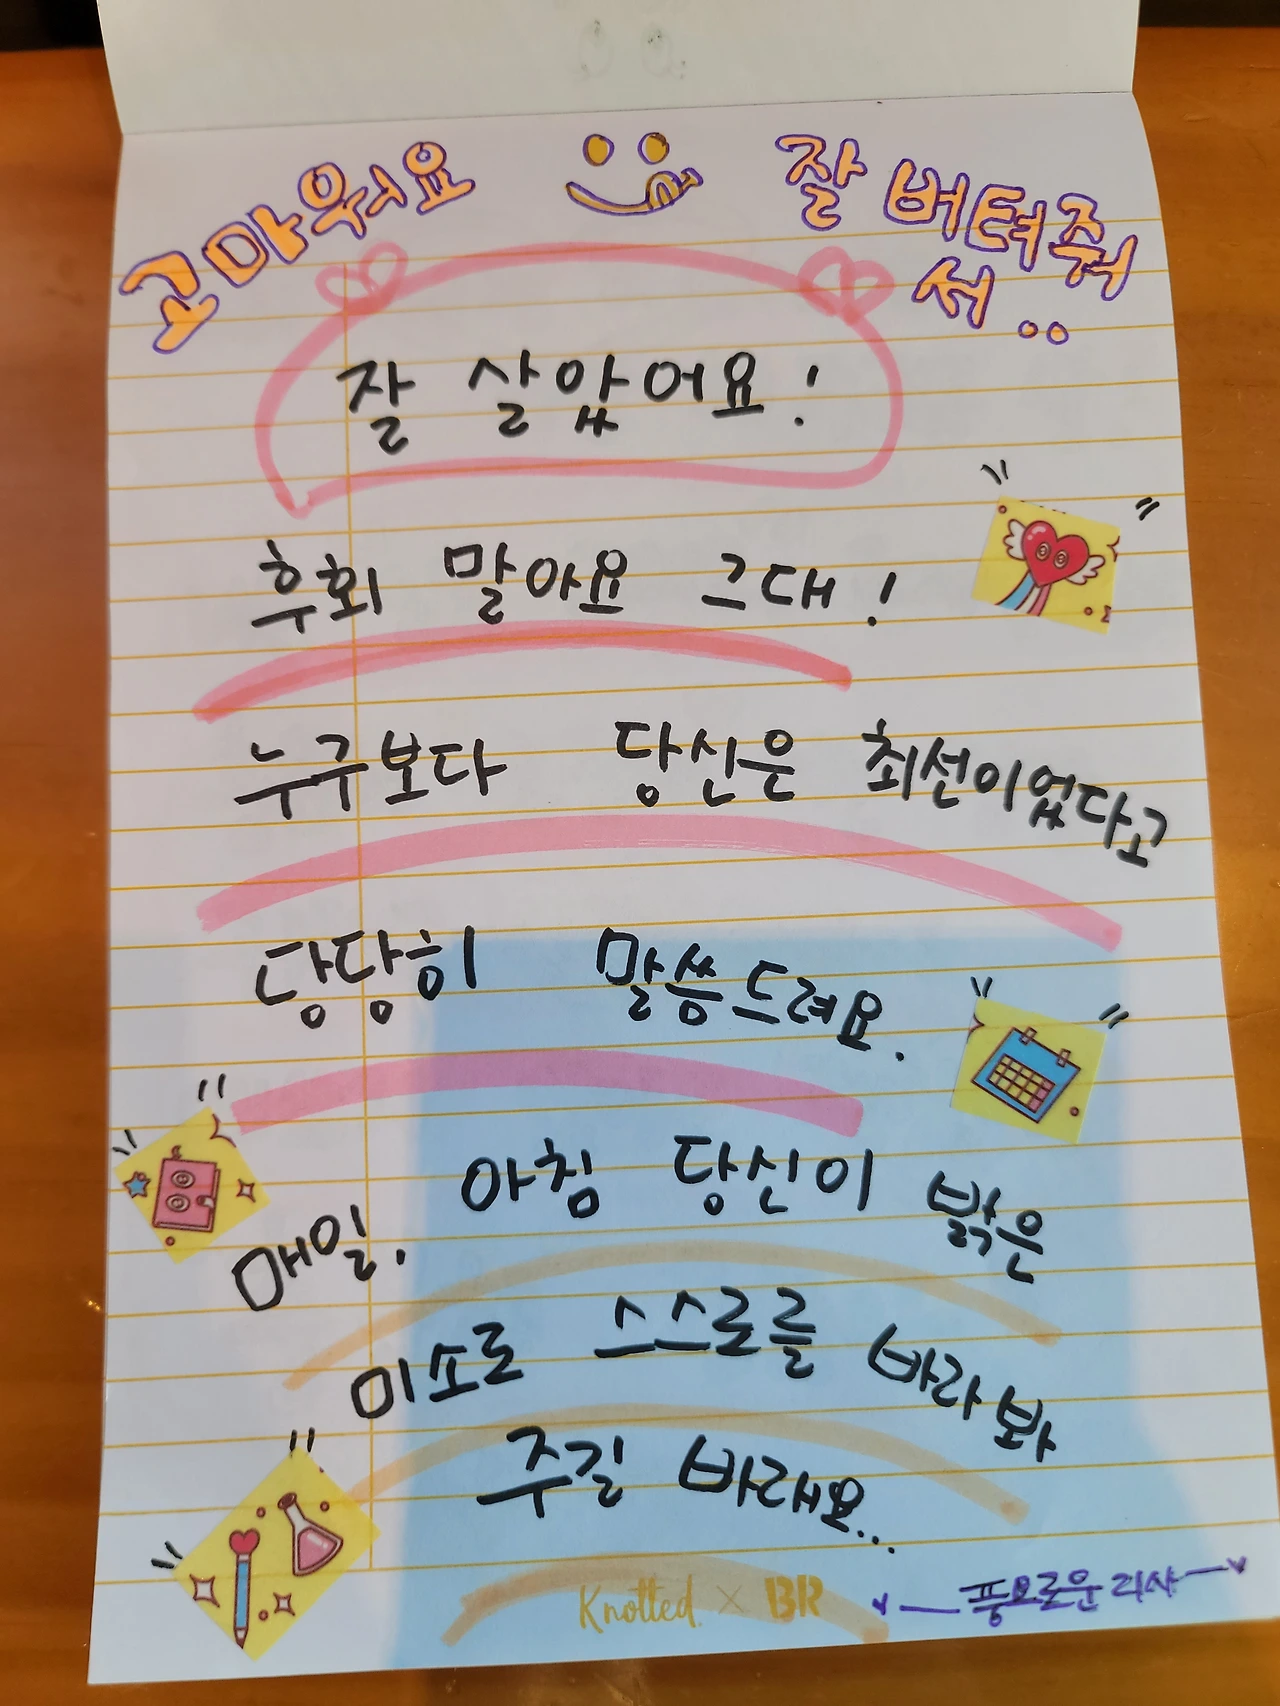 고마워요
잘 버텨줘
서..
잘 살았어요!
후회 말아요 그대!
누구보다 당신은 최선이었다고
당당히 말씀드려요.
매일. 아침 당신이 밝은
미소로 스스로를 바라봐
주길 바래요...
Knotted. × BR
풍요로운 리샤